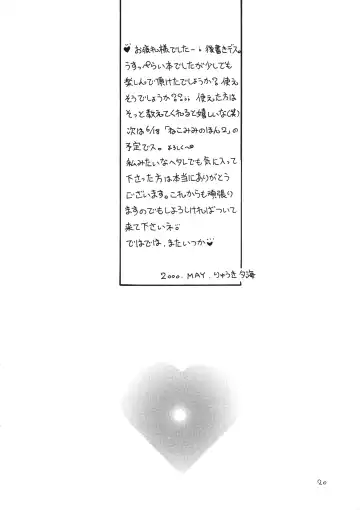 ♥お疲れ様でしたー。後書きデス。
うすっぺらい本でしたが少しでも
楽しんで頂けたでしょうか?使え
そうでしょうか??。。使えた方は
そっと教えてくれると嬉しいな(笑)
次は6/18「ねこみみのほん2」の
予定でス。よろしくぺ
私みたいなヘタレでも気に入って
下さった方は本当にありがとう
ございます。これからも頑張り
ますのでもしよろしければついて
来て下さいネ。
ではでは、またいつか♥
2000. MAY. りゅうき夕海
20